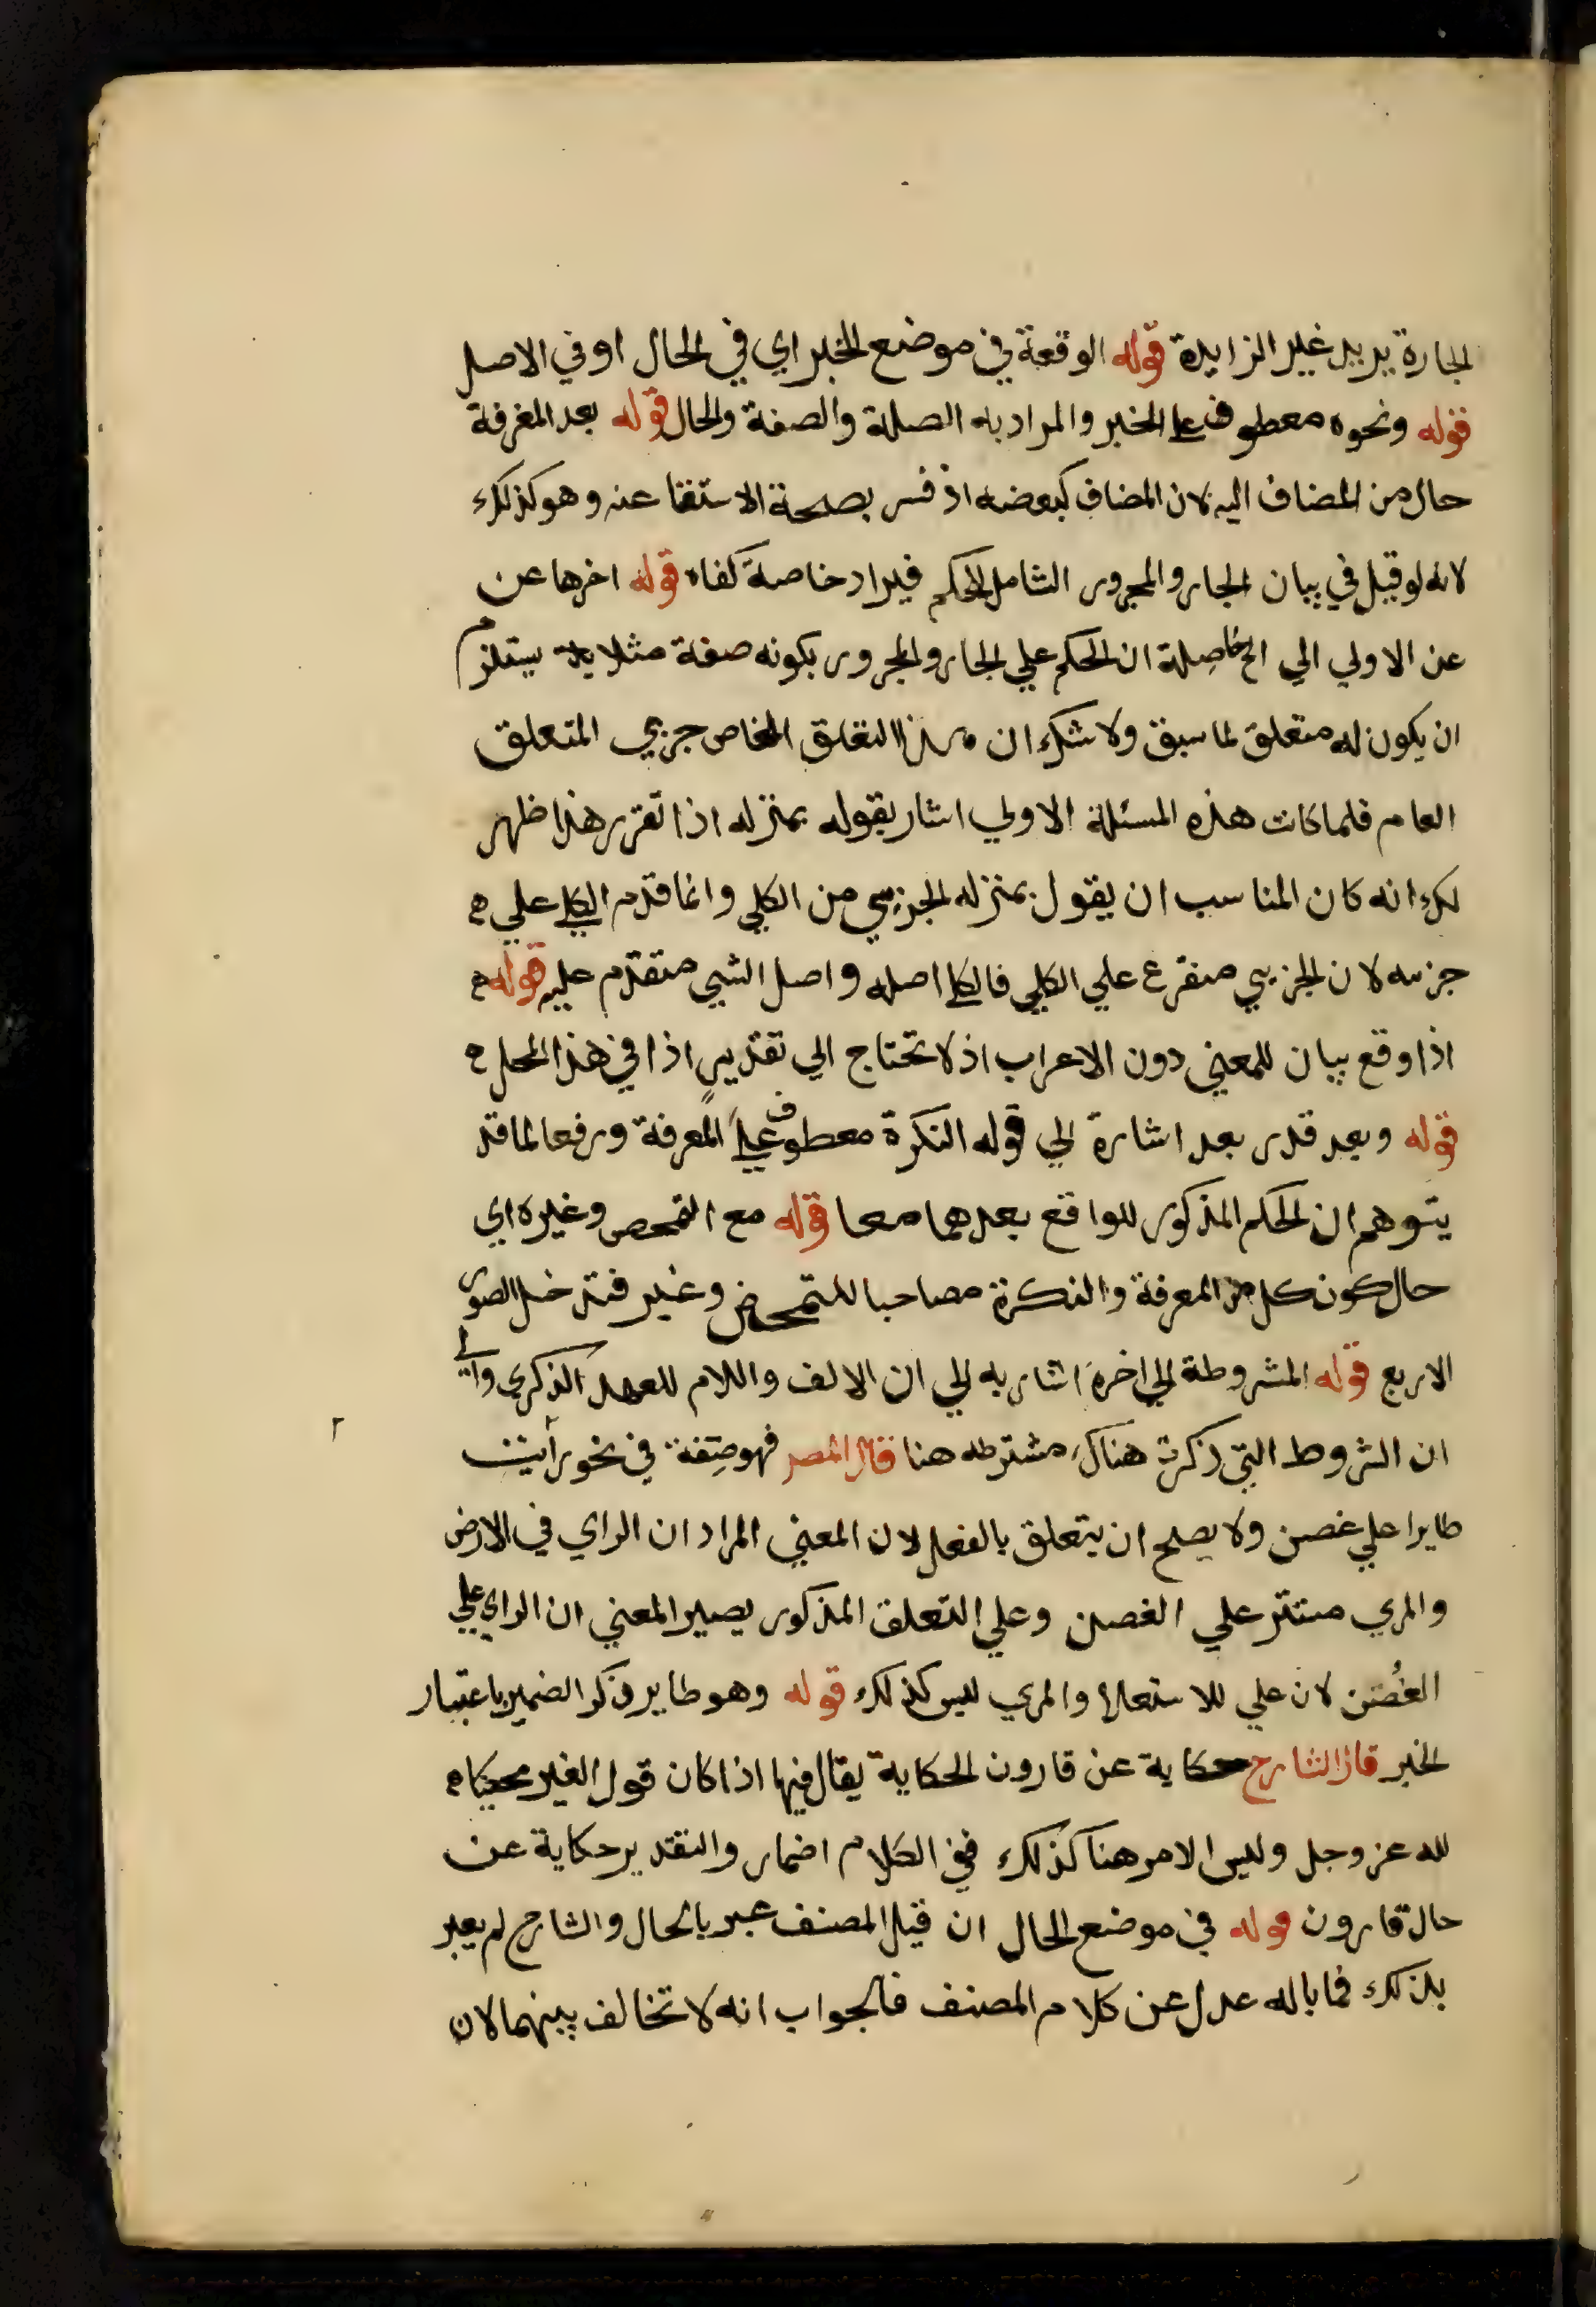 الجارة يريد غير الزايدة قوله الوقعة في موضع الخبر اي في الحال او في الاصل
قوله ونحوه معطوف على الخبر والمراد به الصلة والصفة والحال قوله بعد المعرفة
حال من المضاف اليه لان المضاف كبعضه اذ فسر بصحة الاستغنا عنه وهو كذلك
لانه لو قيل في بيان الجار والمجرور الشامل للحكم فيراد خاصة كفاه قوله اخرها عن
عن الاولي الي الخ حاصله ان الحكم علي الجار والمجرور بكونه صفة مثلا يستلزم
ان يكون له متعلق لما سبق ولا شك ان هذا التعلق الخاص جزيي المتعلق
العام فلما كانت هذه المسئلة الاولي اشار بقوله بمنزله اذا تقرر هذا ظهر
لك انه كان المناسب ان يقول بمنزله الجزيي من الكلي وانما قدم الكلي علي
جزيه لان الجزيي متفرع علي الكلي فالكلي اصله واصل الشيي متقدم عليه قوله
اذا وقع بيان للمعني دون الاعراب اذ لا تحتاج الي تقدير اذا في هذا المحل
قوله وبعد قدر بعد اشارة الي قوله النكرة معطوف علي المعرفة ورفعا لما قد
يتوهم ان الحكم المذكور للواقع بعدهما معا قوله مع التمحض وغيره اي
حال كون كل من المعرفة والنكرة مصاحبا للتمحض وغير فتدخل الصور
الاربع قوله المشروطة الي اخره اشار به الي ان الالف واللام للعهد الذكري والي
ان الشروط التي ذكرت هناك مشترطه هنا قال المصر فهو صفة في نحو رأيت
طايرا علي غصن ولا يصلح ان يتعلق بالفعل لان المعني المراد ان الراي في الارض
والمري مستتر علي الغصن وعلي التعلق المذكور يصير المعني ان الراي علي
الغُصن لان علي للاستعلا والمري ليس كذلك قوله وهو طاير ذكر الضمير باعتبار
الخبر قال الشارح حكاية عن قارون الحكاية يقال فيها اذا كان قول الغير محكيا
لله عز وجل وليس الامر هنا كذلك ففي الكلام اضمار والتقدير حكاية عن
حال قارون قوله في موضع الحال ان قيل المصنف عبر بالحال والشارح لم يعبر
بذلك فما باله عدل عن كلام المصنف فالجواب انه لا تخالف بينهما لان